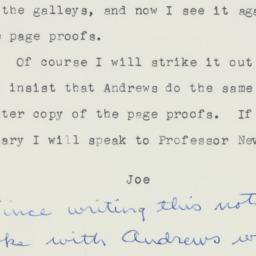 the galleys, and now I see it aga
page proofs.
Of course I will strike it out
insist that Andrews do the same
ter copy of the page proofs. If
ary I will speak to Professor New
Joe
Since writing this not
ke with Andrews w